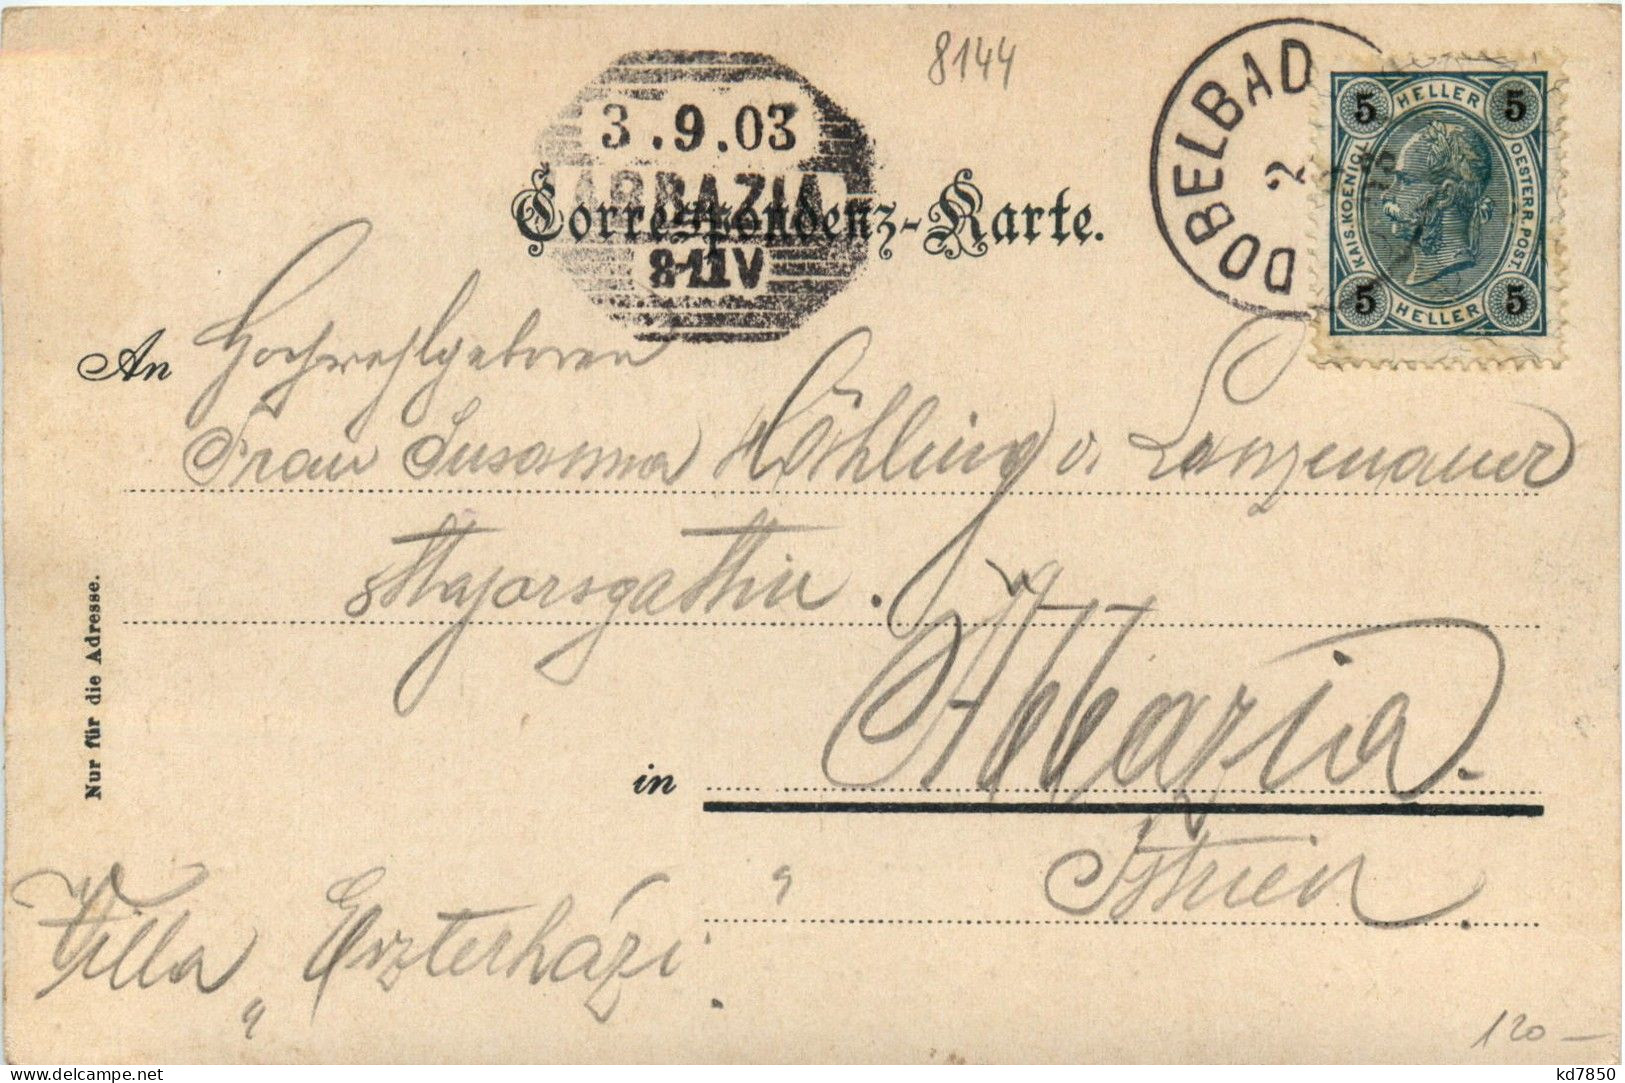 8144
3.9.03
ABBAZIA
8-11V
DOBELBAD
2
5 HELLER 5
KAIS. KOENIGL.
OESTERR. POST.
5 HELLER 5
Correspondenz-Karte.
An Hochwohlgeboren
Frau Susanna Höchling v. Lanzenauer
Majorsgattin.
in Abbazia.
Istrien
Villa „Eszterházi“.
Nur für die Adresse.
120 –
delcampe.net
kd7850